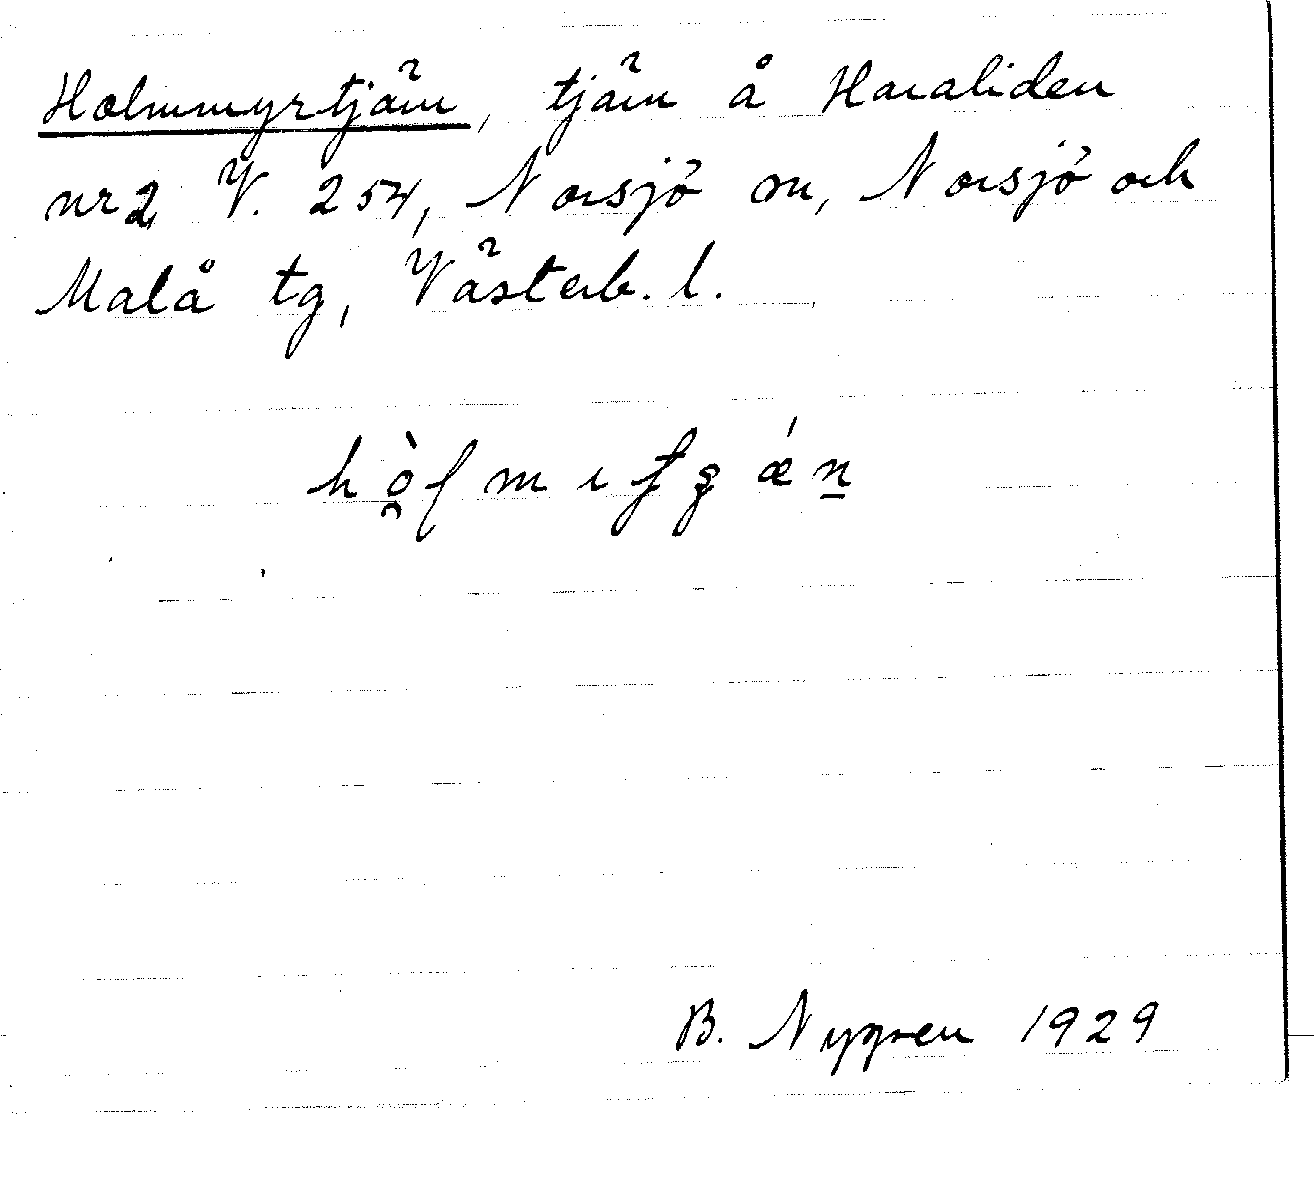 Holmmyrtjärn, tjärn å Haraliden
nr 2 V. 254, Norsjö sn, Norsjö och
Malå tg, Västerb. l.
B. Nygren 1929